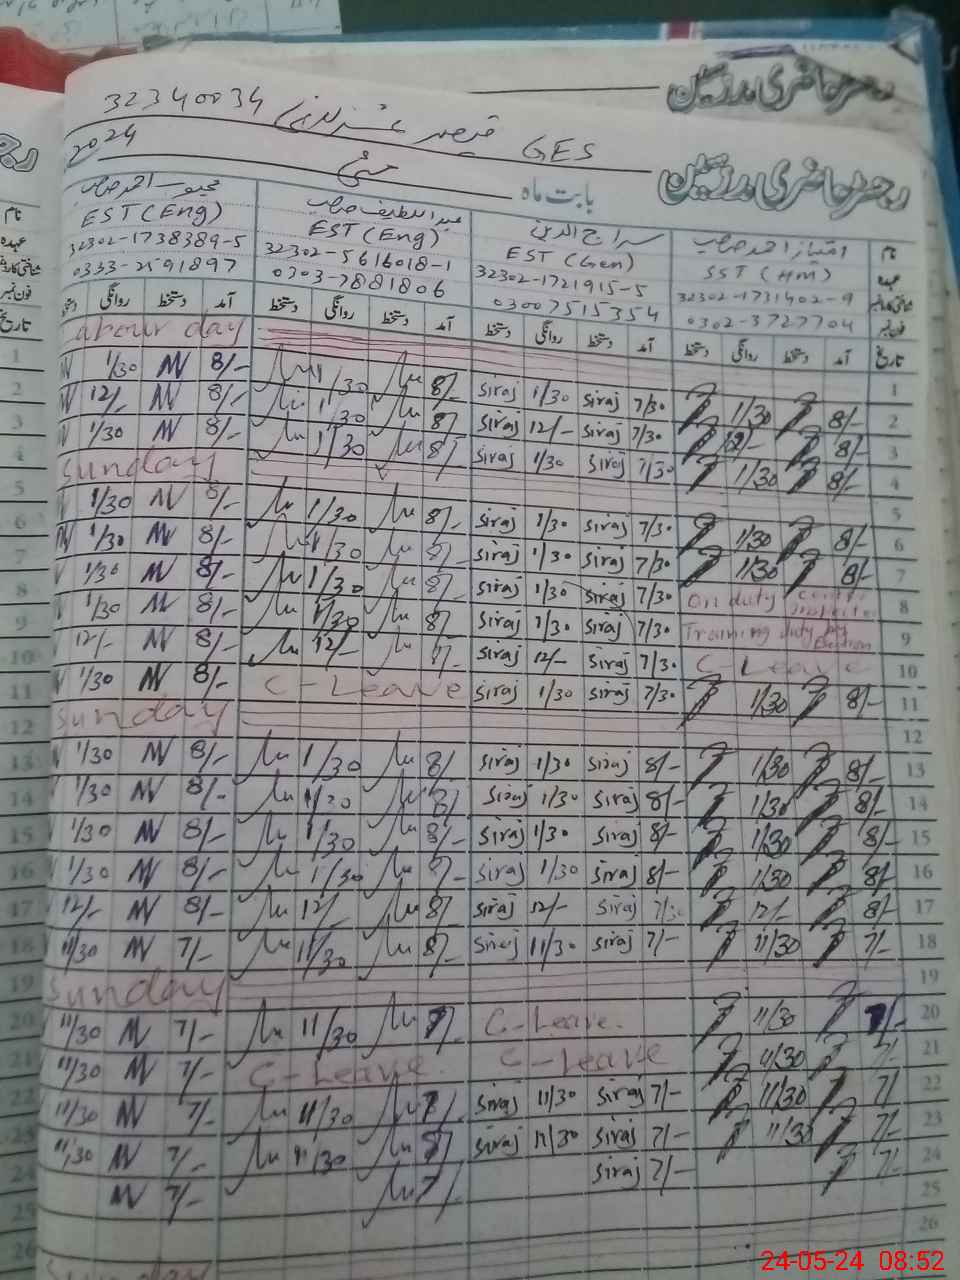 رجسٹر حاضری مدرسین
32340034 GES
رجسٹر حاضری مدرسین
بابت ماہ مئی 2024
نام امتیاز احمد صاحب سراج الدین عبداللطیف صاحب محبوب احمد صاحب
عہدہ SST (HM) EST (Gen) EST (Eng) EST (Eng)
شناختی کارڈ نمبر 32302-1731402-9 32302-1721915-5 32302-5616018-1 32302-1738389-5
فون نمبر 0302-3727704 03007515354 0303-7881806 0333-2591897
تاریخ آمد دستخط روانگی دستخط آمد دستخط روانگی دستخط آمد دستخط روانگی دستخط آمد دستخط روانگی دستخط
1 Labour day
2 1/30 8/- 1/30 8/- siraj 1/30 siraj 7/30 1/30 8/-
3 12/- 8/- 1/30 8/- siraj 12/- siraj 7/30 12/- 8/-
4 1/30 8/- 1/30 8/- siraj 1/30 siraj 7/30 1/30 8/-
5 Sunday
6 1/30 8/- 1/30 8/- siraj 1/30 siraj 7/30 1/30 8/-
7 1/30 8/- 1/30 8/- siraj 1/30 siraj 7/30 1/30 8/-
8 1/30 8/- 1/30 8/- siraj 1/30 siraj 7/30 on duty
9 1/30 8/- 1/30 8/- siraj 1/30 siraj 7/30 Training duty
10 12/- 8/- 12/- 8/- siraj 12/- siraj 7/30 C-Leave
11 1/30 8/- C-Leave siraj 1/30 siraj 7/30 1/30 8/-
12 Sunday
13 1/30 8/- 1/30 8/- siraj 1/30 siraj 8/- 1/30 8/-
14 1/30 8/- 1/30 8/- siraj 1/30 siraj 8/- 1/30 8/-
15 1/30 8/- 1/30 8/- siraj 1/30 siraj 8/- 1/30 8/-
16 1/30 8/- 1/30 8/- siraj 1/30 siraj 8/- 1/30 8/-
17 12/- 8/- 12/- 8/- siraj 12/- siraj 7/30 12/- 8/-
18 11/30 7/- 11/30 8/- siraj 11/30 siraj 7/- 11/30 7/-
19 Sunday
20 11/30 7/- 11/30 7/- C-Leave. 11/30 7/-
21 11/30 7/- C-Leave. C-Leave 11/30 7/-
22 11/30 7/- 11/30 7/- siraj 11/30 siraj 7/- 11/30 7/-
23 11/30 7/- 11/30 8/- siraj 11/30 siraj 7/- 11/30 7/-
24 7/- 7/- siraj 7/- 7/-
25
26 Sunday
24-05-24 08:52